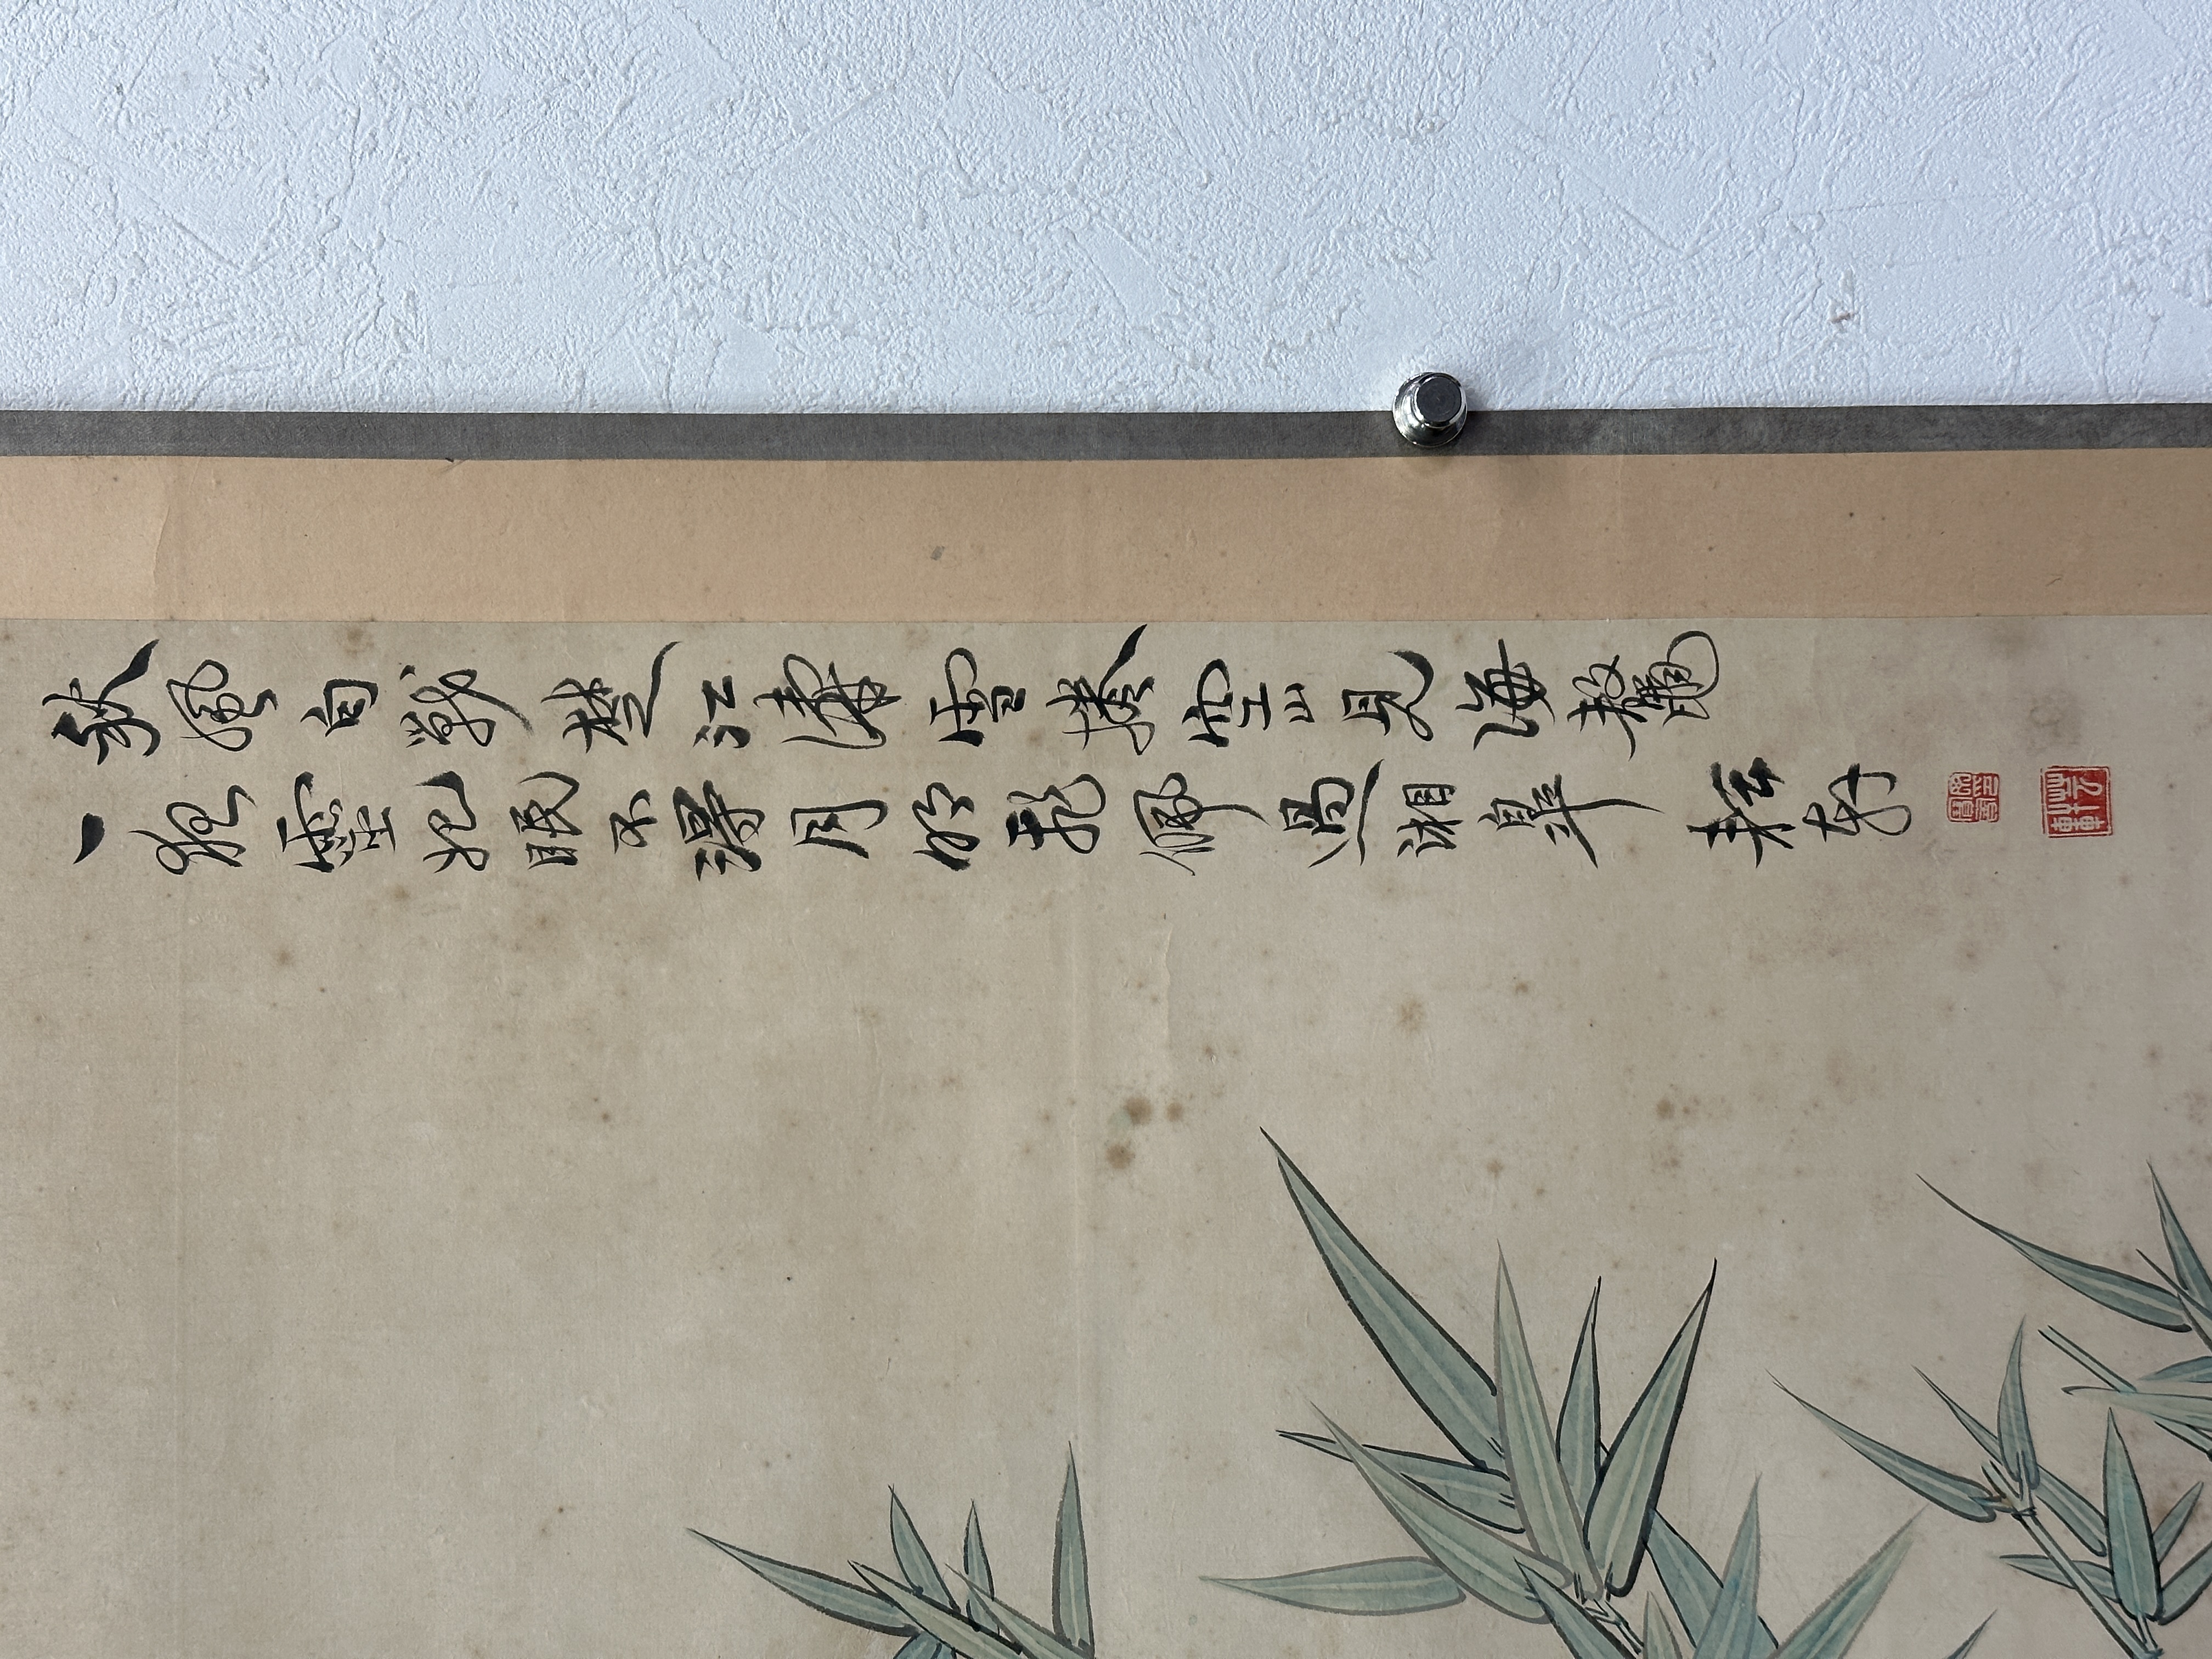 秋風自戰楚江濤雪捲空山見海鼇
一夜靈妃眠不得月明飛佩過湘皐 耘軒
芸軒